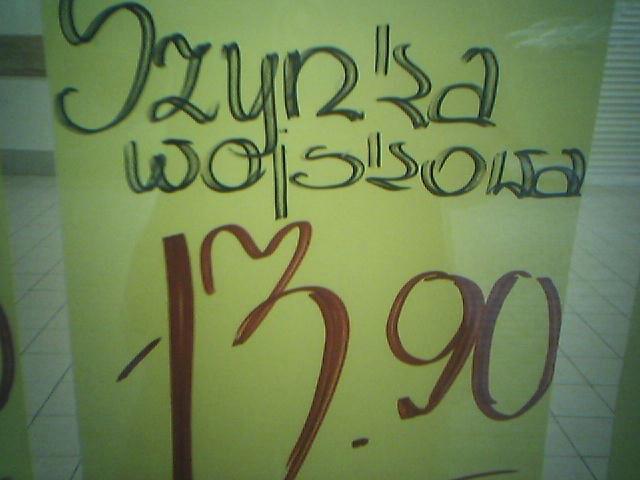 Szynka
wojskowa
13.90